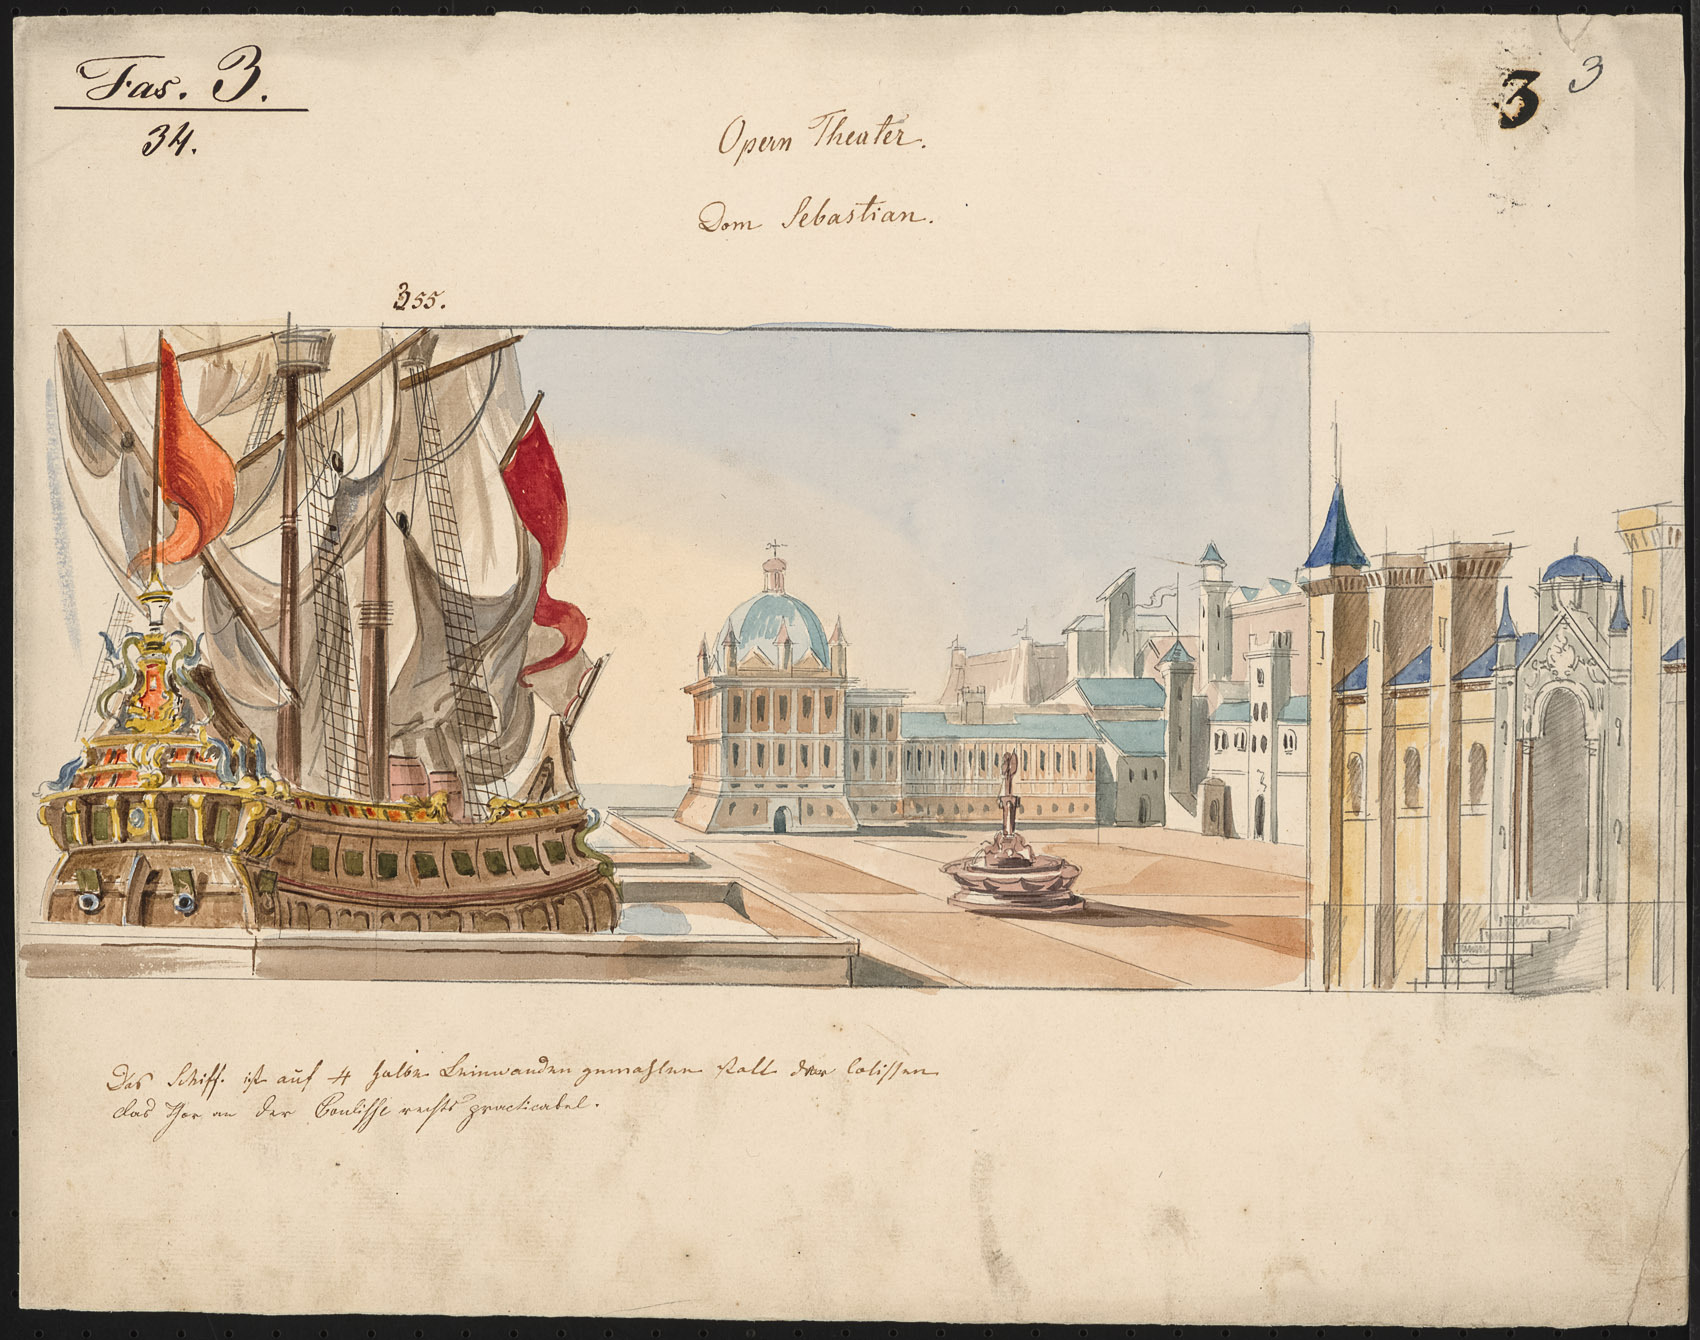 Fas. 3.
34.
3
3
Opern Theater.
Dom Sebastian.
355.
Das Schiff ist auf 4 halbe Leinwanden gemahlen statt der Colissen
das Thor an der Coulisse rechts practicabel.